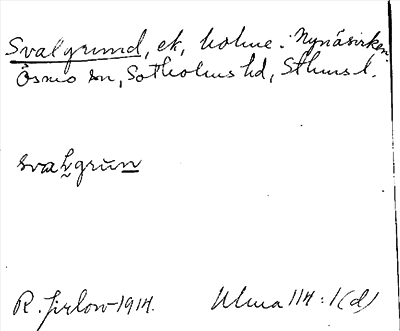 Svalgrund, ek, holme. Nynäsvirken.
Ösmo sn, Sotholms hd, Sthms l.
svaḽgrun
R. Jirlow 1914. Ulma 114:1(d)